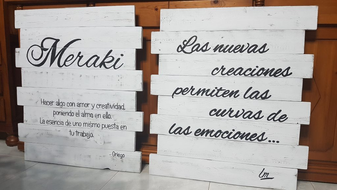 Meraki
Hacer algo con amor y creatividad,
poniendo el alma en ello.
La esencia de uno mismo puesta en
tu trabajo.
Griego
Las nuevas
creaciones
permiten las
curvas de
las emociones...